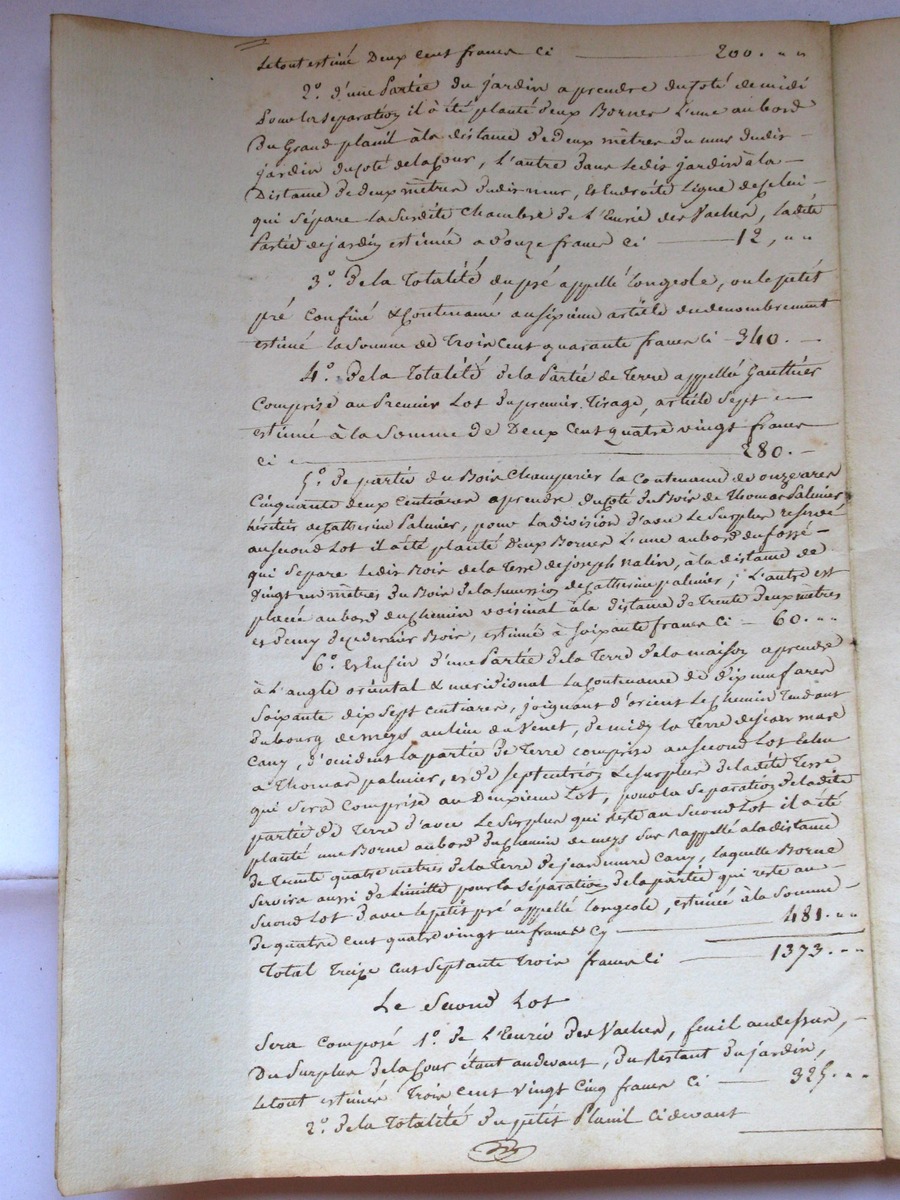 Le tout estimé Deux Cent francs Ci 200. " "
2.º d'une Partie du jardin a prendre du Coté de midi
Pour la Separation il à été planté deux Bornes L'une au bord
Du Grand planil à la distance de deux mètres du mur dudis
jardin du Coté de la Cour, L'autre dans Ledis jardin à la
Distance de deux mètres dudis mur, et En droite Ligne de Celui
qui Sépare La Susdite Chambre de L'Ecurie des Vaches, Ladite
Partie de jardin estimée a Douze francs Ci 12, " "
3.º De la Totalité du pré appellé Longeole, ou le petit
pré Confiné & Contenancé au Sixieme article du denombrement
estimé la Somme de Trois Cent quarante francs Ci 340. "
4.º De la Totalité de la Partie de Terre appellée Gauthier
Comprise au Premier Lot du premier Tirage, article Sept
estimée à la Somme de Deux Cent quatre vingt francs
Ci 280. "
5.º De partie du Bois Champerier la Contenance de onze ares
Cinquante deux Centiares a prendre du Coté du Bois de Thomas Palmier
héritier de Catherine Palmier, pour La division d'avec Le Surplus reservé
au Second Lot il a été planté Deux Bornes L'une au bord du fossé
qui Separe Ledis Bois de la Terre de joseph Nalin, à la distance de
Vingt un mètres du Bois de la Succession de Catherine palmier, L'autre est
placée au bord du Chemin voisinal à la distance de Trente Deux mètres
et demy de Ce dernier Bois, estimé à Soixante francs Ci 60. " "
6.º et Enfin d'une Partie de la Terre de la maison a prendre
à L'angle oriental & meridional La Contenance de dix neuf ares
Soixante dix Sept Centiares, joignant d'orient Le Chemin Tendant
du bourg de meys au lieu du Venet, De midy la Terre de jean marc
Cany, d'occident la partie de Terre comprise au Second Lot Echu
a Thomas palmier, et de Septentrion Le Surplus de ladite Terre
qui Sera Comprise au Deuxieme Lot, pour la Separation de ladite
partie de Terre d'avec Le Surplus qui reste au Second Lot il a été
planté une Borne au bord du Chemin de meys Sus rappellé a la distance
de Trente quatre metres de la Terre de jean marc Cany, laquelle Borne
Servira aussi de Limitte pour la Séparation de la partie qui reste au
Second Lot d'avec le petit pré appellé Longeole, estimée à la Somme
De quatre Cent quatre vingt un francs Cy 481. " "
Total Treize Cent Septante Trois francs Ci 1373. " "
Le Second Lot
Sera Composé 1.º de L'Ecurie des Vaches, fenil au dessus,
Du Surplus de la Cour étant au devant, du Restant du jardin,
Le tout estimé Trois Cent vingt Cinq francs Ci 325. " "
2.º De la Totalité du petit Planil Ci devant